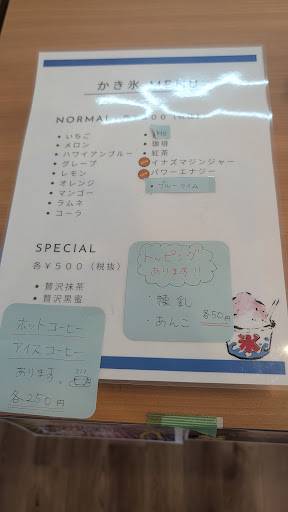 かき氷 MENU
NORMAL
いちご
メロン
ハワイアンブルー
グレープ
レモン
オレンジ
マンゴー
ラムネ
コーラ
珈琲
紅茶
イナズマジンジャー
パワーエナジー
ブルーライム
SPECIAL
各¥500（税抜）
贅沢抹茶
贅沢黒蜜
トッピング
あります!!
・練乳
・あんこ 各50円
ホットコーヒー
アイスコーヒー
あります。
各250円
氷